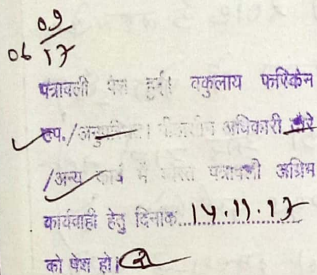 09
06 17
पत्रावली पेश हुई। वकुलाय फरिकेन
उप./अनुपस्थित। पीठासीन अधिकारी दौरे
/अन्य कार्य में व्यस्त पत्रावली अग्रिम
कार्यवाही हेतु दिनांक..14.11.17
को पेश हो।